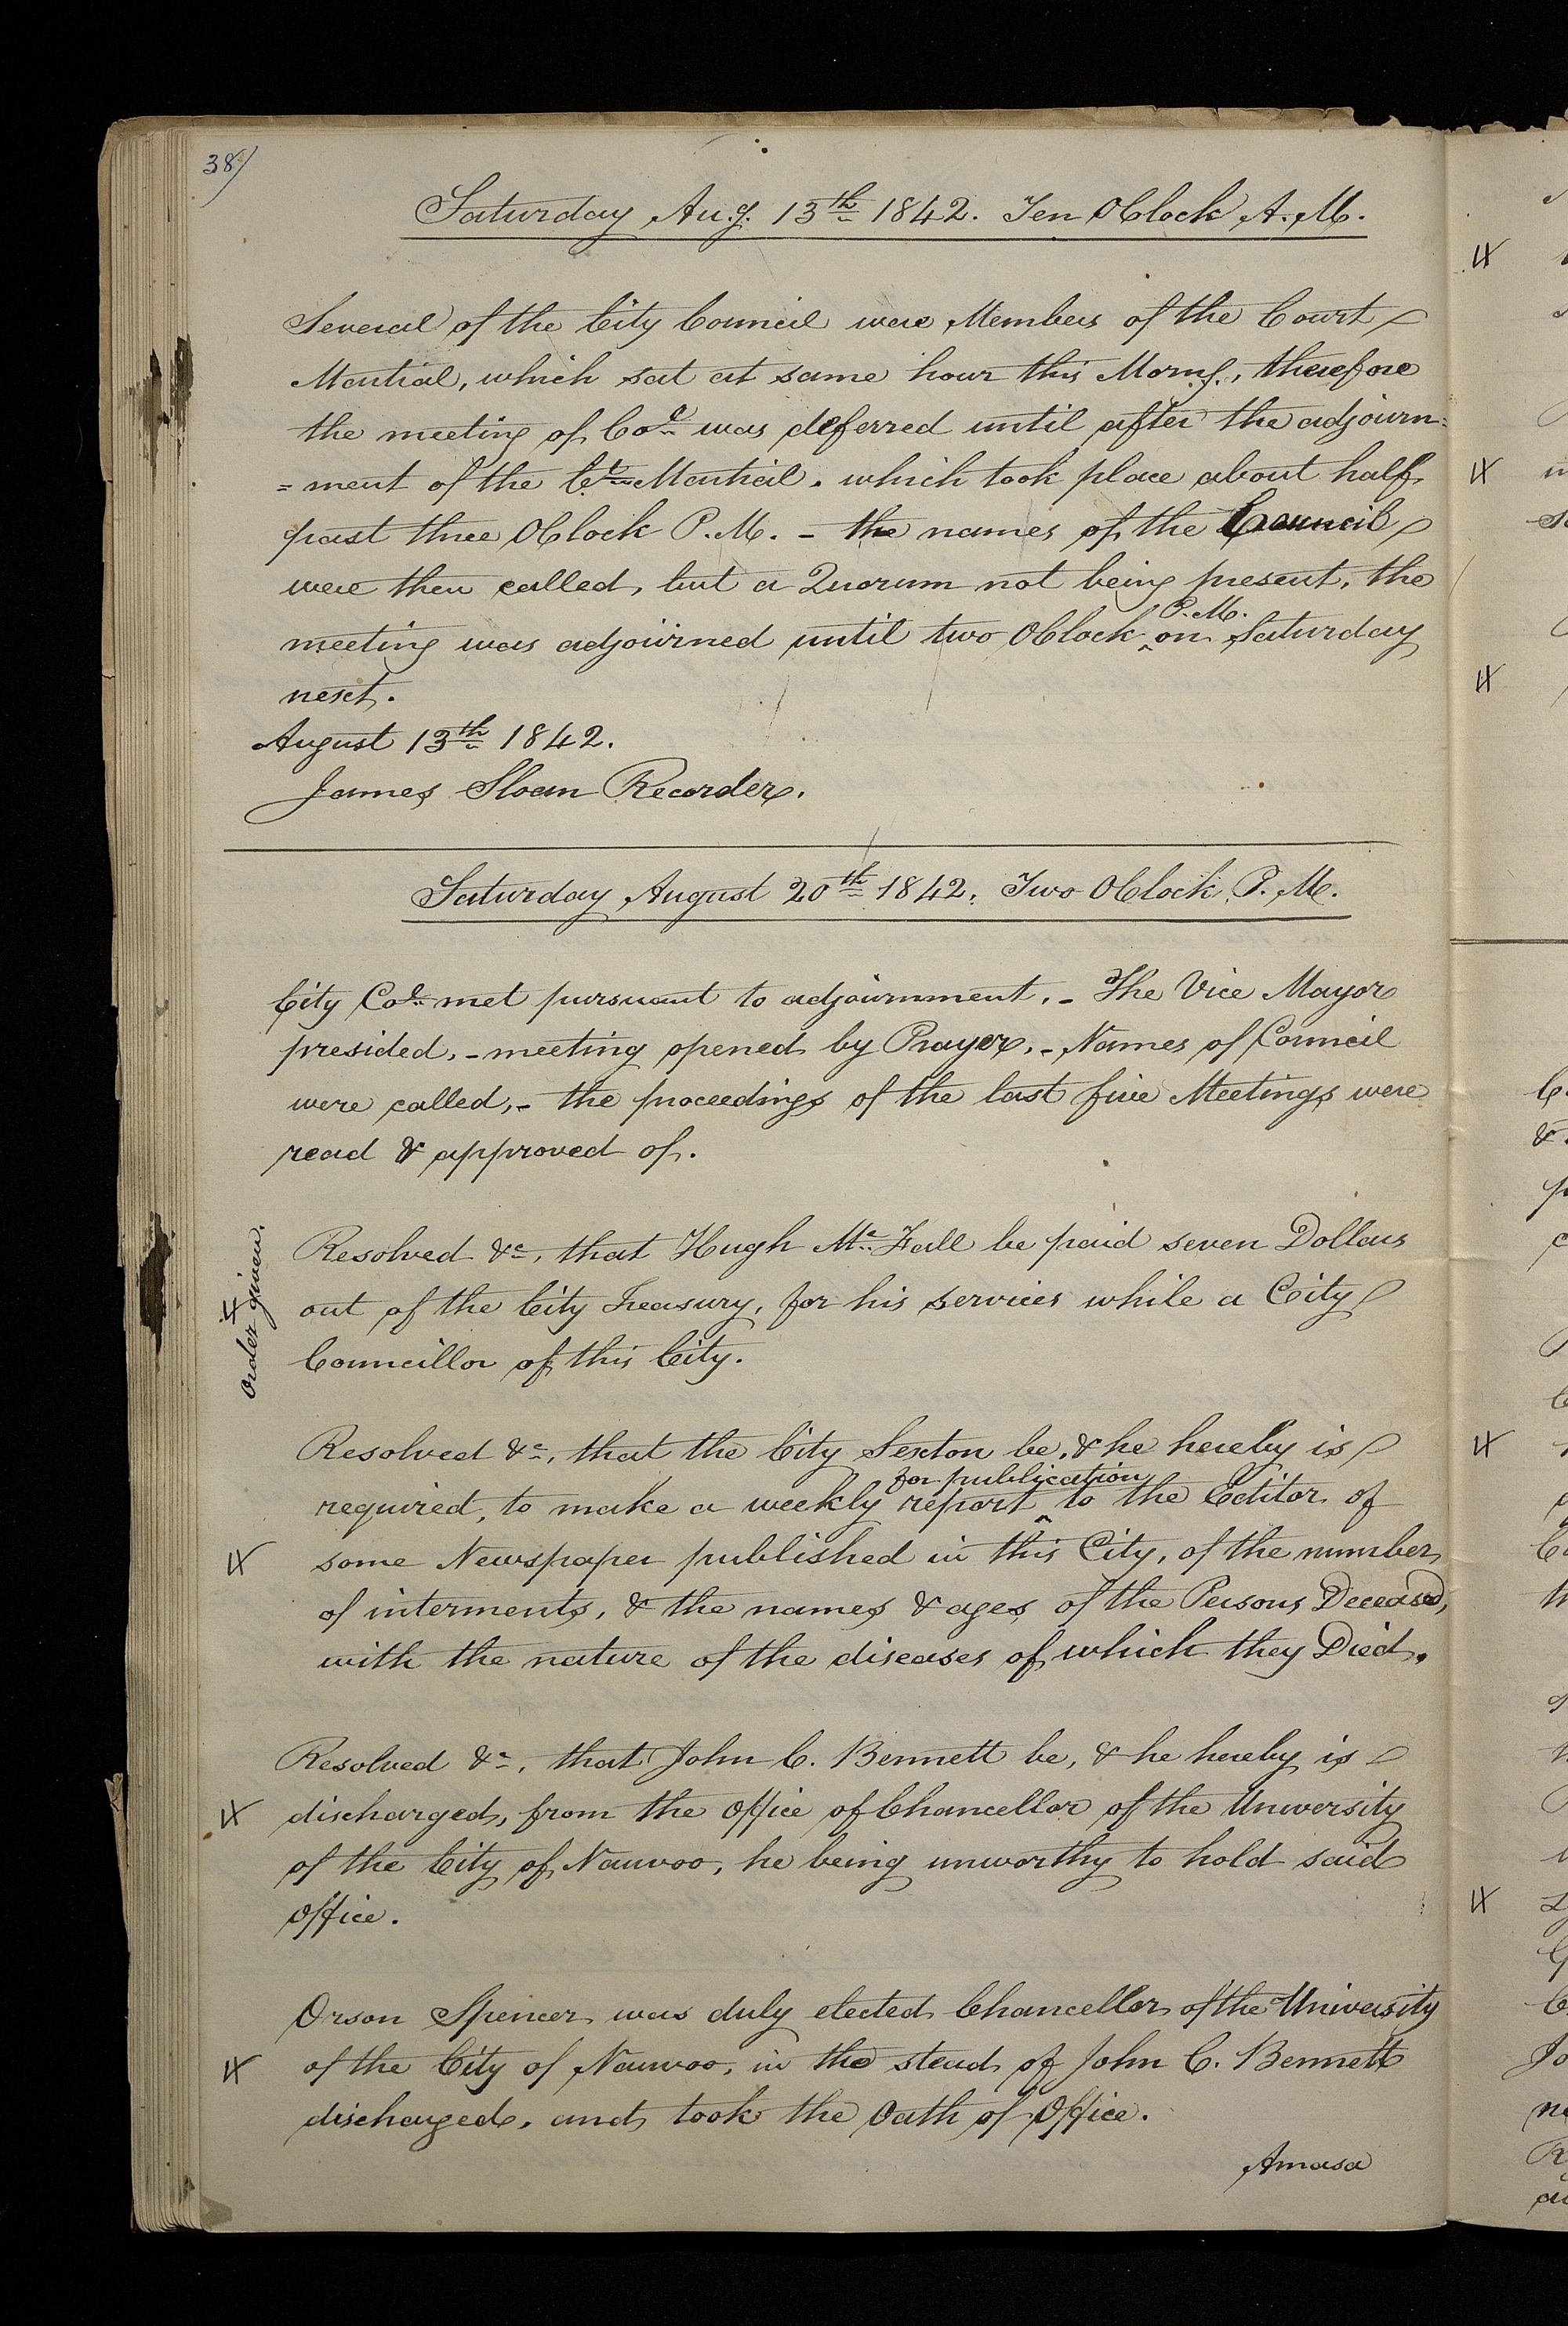 38/
Saturday Aug. 13th 1842. Ten OClock A.M.
Several of the City Council were Members of the Court
Martial, which sat at same hour this Morng., therefore
the meeting of Col was deferred until after the adjourn=
=ment of the Ct Martial. which took place about half
past three OClock P.M. - the names of the Council
were then called, but a Quorum not being present, the
P.M.
meeting was adjourned until two OClock ^ on Saturday
next.
August 13th 1842.
James Sloan Recorder.
Saturday August 20th 1842. Two OClock P.M.
City Col met pursuant to adjournment. - The Vice Mayor
presided, - meeting opened by Prayer. - Names of Council
were called, - the proceedings of the last five Meetings were
read & approved of.
Order given.
Resolved &c, that Hugh Mc Fall be paid seven Dollars
out of the City Treasury, for his services while a City
Councillor of this City.
Resolved &c, that the City Sexton be, & he hereby is
for publication
required, to make a weekly report ^ to the Editor of
some Newspaper published in this City, of the number
of interments, & the names & ages of the Persons Deceased,
with the nature of the diseases of which they Died.
Resolved &c, that John C. Bennett be, & he hereby is
discharged, from the Office of Chancellor of the University
of the City of Nauvoo, he being unworthy to hold said
Office.
Orson Spencer was duly elected Chancellor of the University
of the City of Nauvoo, in the stead of John C. Bennett
discharged, and took the Oath of Office.
Amasa